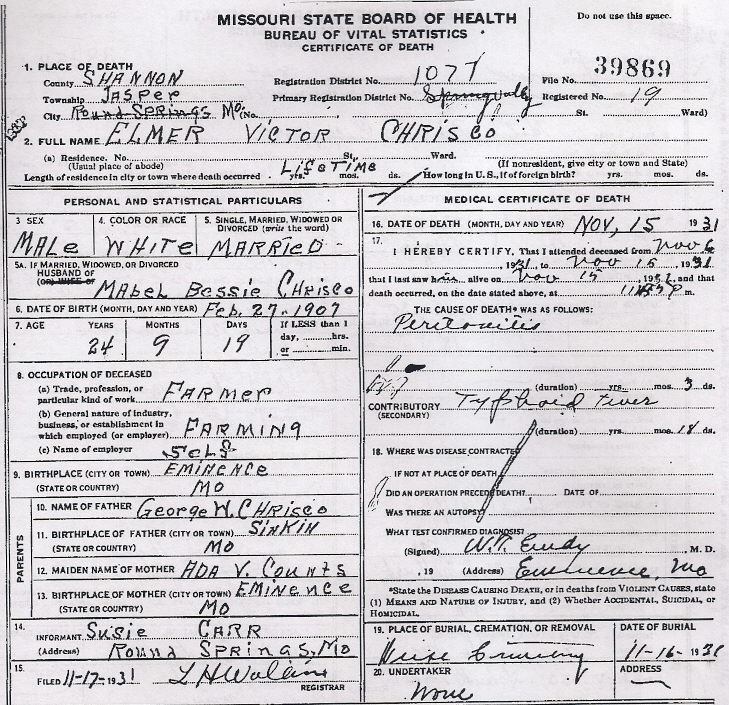 MISSOURI STATE BOARD OF HEALTH
BUREAU OF VITAL STATISTICS
CERTIFICATE OF DEATH
Do not use this space.
1. PLACE OF DEATH
County SHANNON
Registration District No. 1077
File No. 39869
Township JASPER
Primary Registration District No. Spring Vally
Registered No. 19
City ROUND SPRINGS Mo. (No. St. Ward)
2. FULL NAME ELMER VICTOR CHRISCO
(a) Residence. No. St. Ward.
(Usual place of abode) (If nonresident, give city or town and State)
Length of residence in city or town where death occurred LIFETIME yrs. mos. ds. How long in U. S., if of foreign birth? yrs. mos. ds.
PERSONAL AND STATISTICAL PARTICULARS
3 SEX 4. COLOR OR RACE 5. SINGLE, MARRIED, WIDOWED OR
DIVORCED (write the word)
MALE WHITE MARRIED
5A. IF MARRIED, WIDOWED, OR DIVORCED
HUSBAND OF
(OR) WIFE OF MABEL BESSIE CHRISCO
6. DATE OF BIRTH (MONTH, DAY AND YEAR) Feb. 27-1907
7. AGE YEARS MONTHS DAYS If LESS than 1
day, hrs.
or min.
24 9 19
8. OCCUPATION OF DECEASED
(a) Trade, profession, or
particular kind of work FARMER
(b) General nature of industry,
business, or establishment in
which employed (or employer) FARMING
(c) Name of employer SELF
9. BIRTHPLACE (CITY OR TOWN) EMINENCE
(STATE OR COUNTRY) MO
PARENTS
10. NAME OF FATHER GEORGE W. CHRISCO
11. BIRTHPLACE OF FATHER (CITY OR TOWN) SINKIN
(STATE OR COUNTRY) MO
12. MAIDEN NAME OF MOTHER ADA V. COUNTS
13. BIRTHPLACE OF MOTHER (CITY OR TOWN) EMINENCE
(STATE OR COUNTRY) MO
14. INFORMANT SUSIE CARR
(Address) ROUND SPRINGS, MO
15. FILED 11-17-1931 L H
REGISTRAR
MEDICAL CERTIFICATE OF DEATH
16. DATE OF DEATH (MONTH, DAY AND YEAR) NOV, 15 1931
17. I HEREBY CERTIFY, That I attended deceased from Nov 6
, 1931, to Nov 15, 1931
that I last saw him alive on Nov 15, 1931, and that
death occurred, on the date stated above, at m.
THE CAUSE OF DEATH* WAS AS FOLLOWS:
Peritonitis
(duration) yrs. mos. 3 ds.
CONTRIBUTORY Typhoid Fever
(SECONDARY)
(duration) yrs. mos. 18 ds.
18. WHERE WAS DISEASE CONTRACTED
IF NOT AT PLACE OF DEATH
DID AN OPERATION PRECEDE DEATH? DATE OF
WAS THERE AN AUTOPSY
WHAT TEST CONFIRMED DIAGNOSIS?
(Signed) W.T. Eudy M. D.
, 19 (Address) Eminence, Mo
*State the DISEASE CAUSING DEATH, or in deaths from VIOLENT CAUSES, state
(1) MEANS AND NATURE OF INJURY, and (2) Whether ACCIDENTAL, SUICIDAL, or
HOMICIDAL.
19. PLACE OF BURIAL, CREMATION, OR REMOVAL DATE OF BURIAL
11-16-1931
20. UNDERTAKER ADDRESS
None